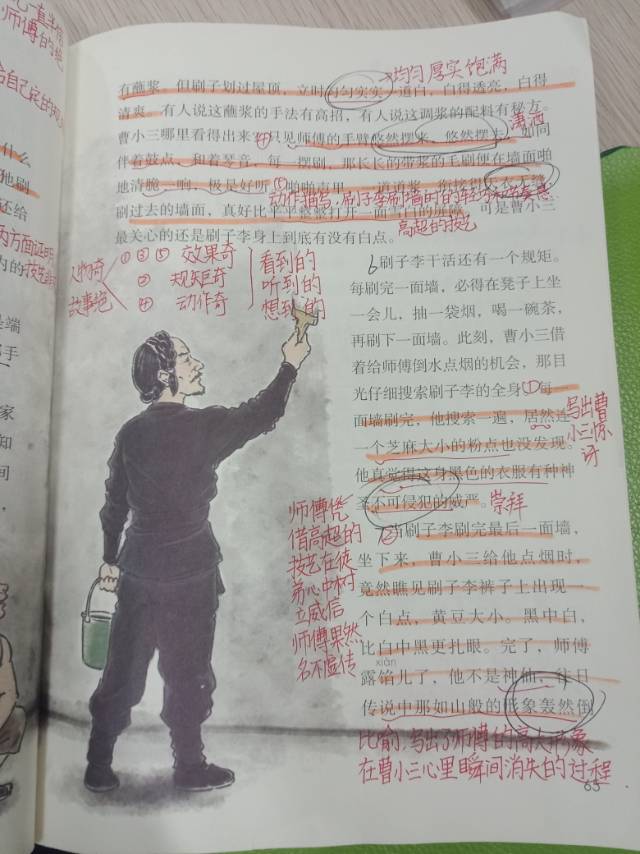 →均匀厚实饱满
有蘸浆,但刷子划过屋顶,立时匀匀实实一道白,白得透亮,白得
清爽。有人说这蘸浆的手法有高招,有人说这调浆的配料有秘方。
曹小三哪里看得出来?只见师傅的手臂悠然摆来,悠然摆去,如同
潇洒
伴着鼓点,和着琴音,每一摆刷,那长长的带浆的毛刷便在墙面啪
地清脆一响,极是好听。啪啪声里,一道道浆,衔接得天衣无缝,
刷过去的墙面,真好比平平整整打开一面雪白的屏障。可是曹小三
高超的技艺
最关心的还是刷子李身上到底有没有白点。
人物奇
故事绝
①③⑤ 效果奇
②③ 规矩奇
④ 动作奇
看到的
听到的
想到的
6刷子李干活还有一个规矩。
每刷完一面墙,必得在凳子上坐
一会儿,抽一袋烟,喝一碗茶,
再刷下一面墙。此刻,曹小三借
着给师傅倒水点烟的机会,那目
光仔细搜索刷子李的全身①每一
面墙刷完,他搜索一遍,居然连
一个芝麻大小的粉点也没发现。
他真觉得这身黑色的衣服有种神
圣不可侵犯的威严。崇拜
写出曹
小三惊
讶
②当刷子李刷完最后一面墙,
坐下来,曹小三给他点烟时,
竟然瞧见刷子李裤子上出现一
个白点,黄豆大小。黑中白,
比白中黑更扎眼。完了,师傅
xiàn
露馅儿了,他不是神仙,往日
传说中那如山般的形象轰然倒
师傅凭
借高超的
技艺在徒
弟心中树
立威信
师傅果然
名不虚传
比喻,写出了师傅的高大形象
在曹小三心里瞬间消失的过程
65